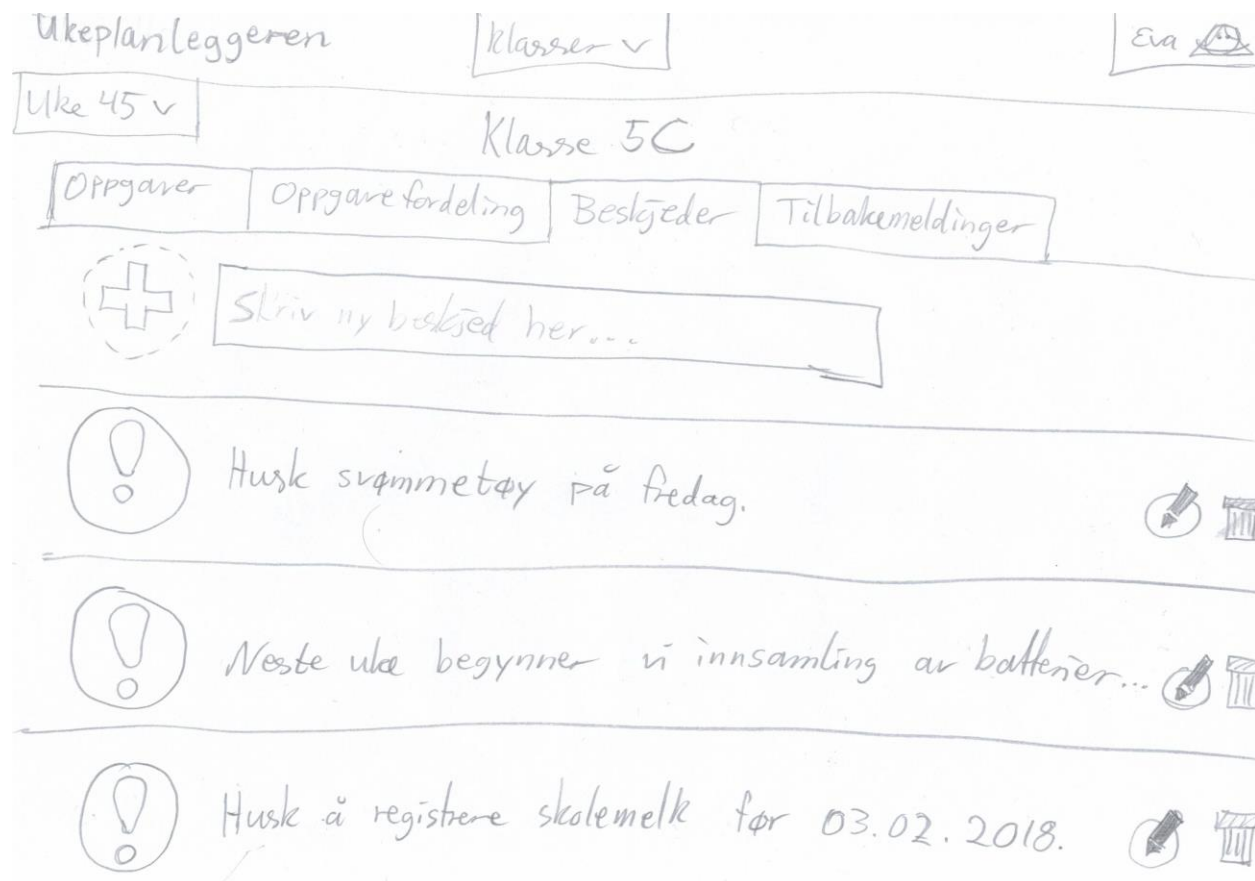 Ukeplanleggeren Klasser Eva
Uke 45
Klasse 5C
Oppgaver Oppgavefordeling Beskjeder Tilbakemeldinger
Skriv ny beskjed her...
Husk svømmetøy på fredag.
Neste uke begynner vi innsamling av batterier...
Husk å registrere skolemelk før 03.02.2018.